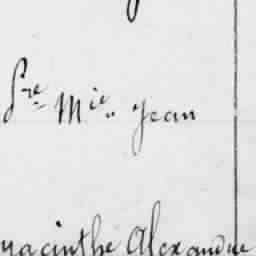 Pre Mie Jean
yacinthe Alexandre